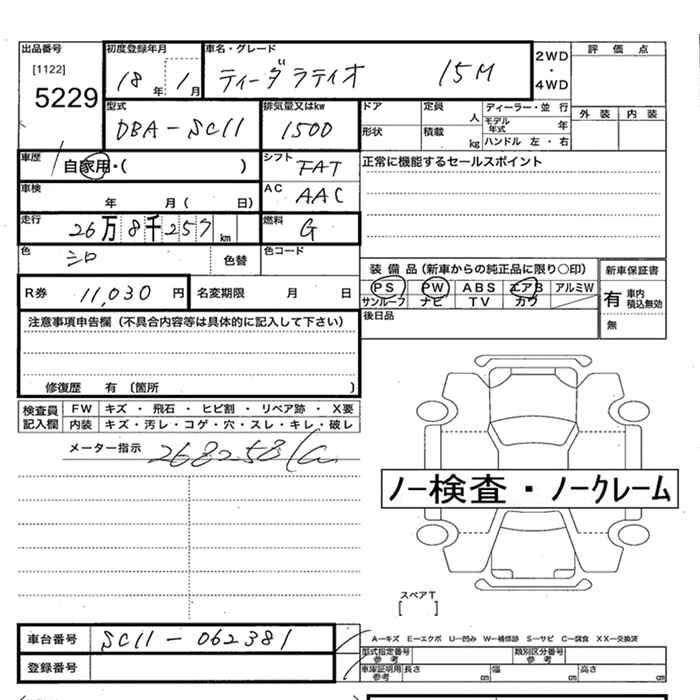 出品番号 初度登録年月 車名・グレード 2WD ・ 4WD 評価点
[1122] 5229 18年 1月 ティーダラティオ 15M 外装 内装
型式 排気量又はkw ドア 定員 人 ディーラー・並行
DBA-SC11 1500 形状 積載 kg モデル年式 年
ハンドル 左・右
車歴 自家用・( ) シフト FAT 正常に機能するセールスポイント
車検 年 月( 日) AC AAC
走行 26万8千257km 燃料 G
色 シロ 色替 色コード
装備品(新車からの純正品に限り○印) 新車保証書
R券 11,030円 名変期限 月 日 PS PW ABS エアB アルミW 有 車内積込無効
サンルーフ ナビ TV カワ
注意事項申告欄(不具合内容等は具体的に記入して下さい) 後日品 無
修復歴 有 (箇所 )
検査員記入欄 FW キズ・飛石・ヒビ割・リペア跡・X要
内装 キズ・汚レ・コゲ・穴・スレ・キレ・破レ
メーター指示 268258km
ノー検査・ノークレーム
スペアT
[ ]
車台番号 SC11-062381 A-キズ E-エクボ U-凹み W-補修跡 S-サビ C-腐食 XX-交換済
型式指定番号 参考 類別区分番号 参考
登録番号 車庫証明用 参考 長さ cm 幅 cm 高さ cm